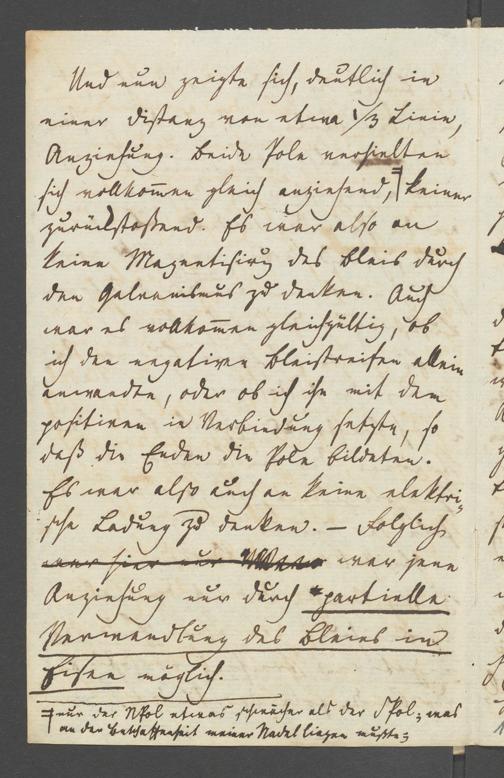 Und nun zeigte sich, deutlich in
einer Distanz von etwa 1/3 Linie,
Anziehung. Beide Pole verhielten
sich vollkom̅en gleich anziehend, keiner
zurückstoßend. Es war also an
keine Magnetisirg des Bleis durch
den Galvanismus zu denken. Auch
war es vollkom̅en gleichgültig, ob
ich den negativen Bleistreifen allein
anwandte, oder ob ich ihn mit dem
positiven in Verbindung setzte, so
daß die Enden die Pole bildeten.
Es war also auch an keine elektri-
sche Ladung zu denken. – Folglich
war hier nur war jene
Anziehung nur durch partielle
Verwandlung des Bleies in
Eisen möglich.
nur der NPol etwas schwächer als der SPol; was
an der Beschaffenheit meiner Nadel liegen mußte;